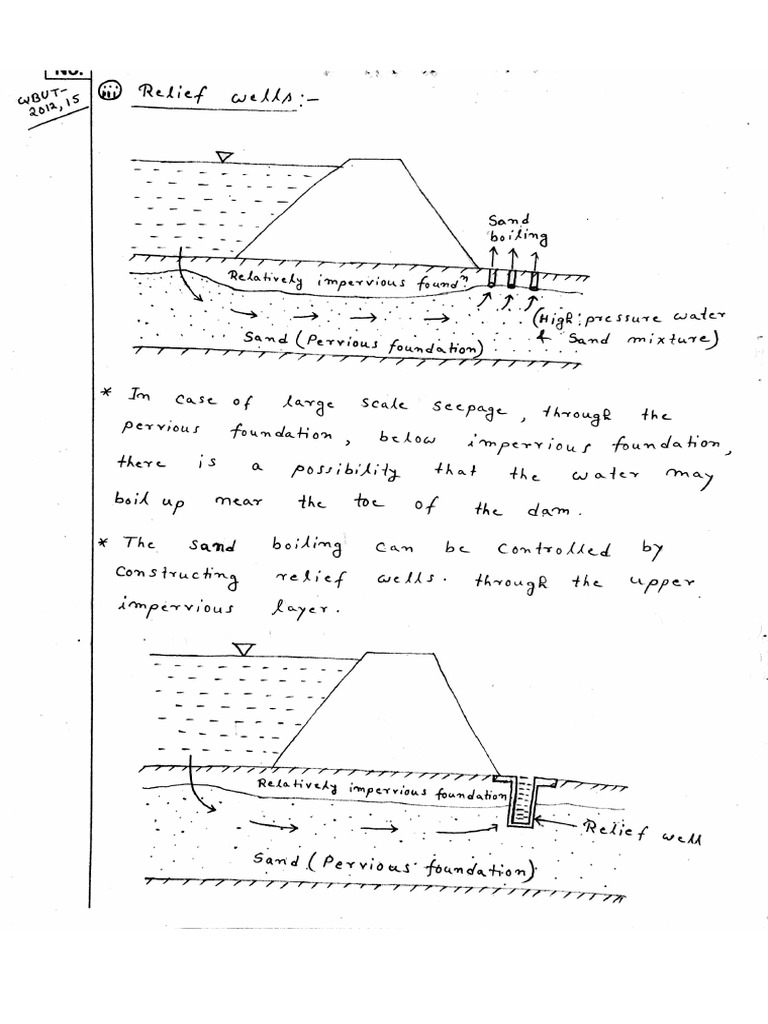 No.
WBUT-
2012, 15
(iii) Relief wells:-
Sand
boiling
Relatively impervious foundⁿ
(High pressure water
& Sand mixture)
Sand (Pervious foundation)
* In case of large scale seepage, through the
pervious foundation, below impervious foundation,
there is a possibility that the water may
boil up near the toe of the dam.
* The sand boiling can be controlled by
constructing relief wells. through the upper
impervious layer.
Relatively impervious foundation
Relief well
Sand (Pervious foundation)